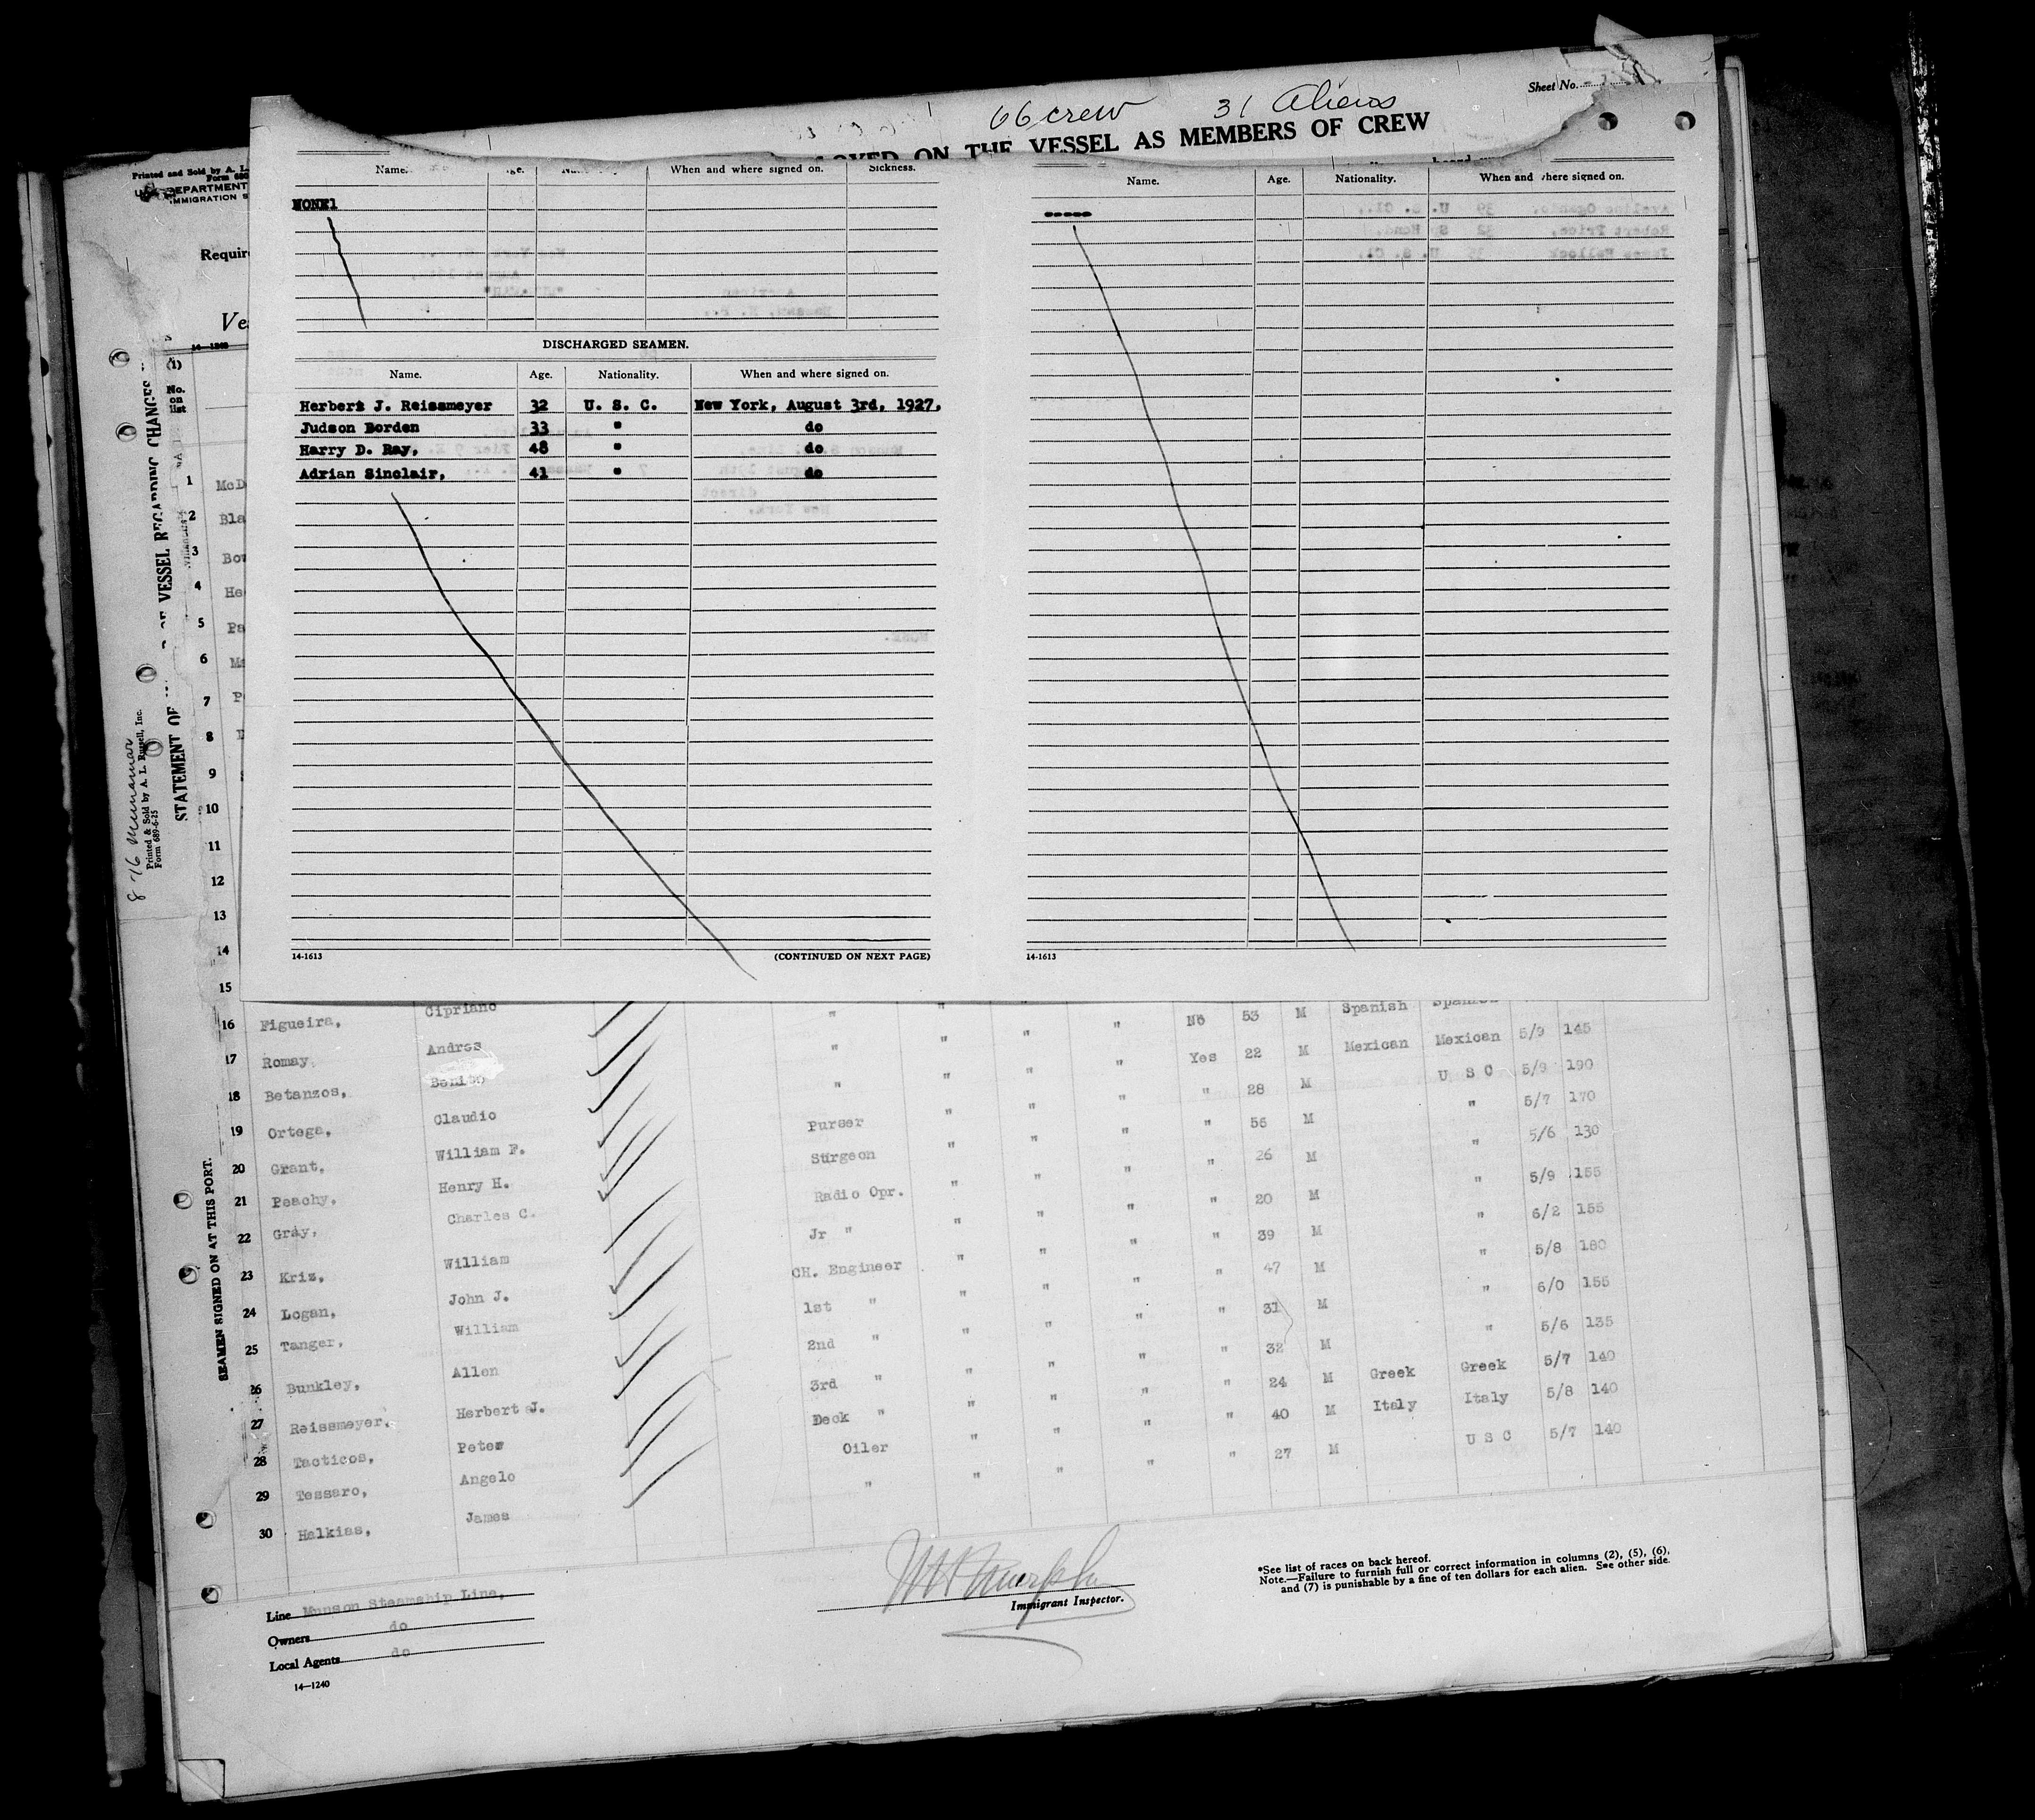 66 crew 31 Aliens
Sheet No.
THE VESSEL AS MEMBERS OF CREW
Printed and Sold by A. L.
DEPARTMENT
IMMIGRATION S
Name. When and where signed on. Sickness.
NONE1
DISCHARGED SEAMEN.
Name. Age. Nationality. When and where signed on.
Herbert J. Reissmeyer 32 U. S. C. New York, August 3rd, 1927.
Judson Borden 33 " do
Harry D. Ray, 48 " do
Adrian Sinclair, 41 " do
14-1613 (CONTINUED ON NEXT PAGE)
Name. Age. Nationality. When and where signed on.
-----
14-1613
No. on list
1 McD
2 Bla
3 Bow
4 He
5 Pa
6
7 P
8
9
10
11
12
13
14
15
16 Figueira, Cipriano " " " " No 53 M Spanish
17 Romay Andros " " " " Yes 22 M Mexican Mexican 5/9 145
18 Betanzos, Benito " " " " " 28 M U S C 5/9 190
19 Ortega, Claudio Purser " " " " 56 M " 5/7 170
20 Grant, William F. Surgeon " " " " 26 M " 5/6 130
21 Peachy, Henry H. Radio Opr. " " " " 20 M " 5/9 155
22 Gray, Charles C. Jr " " " " " 39 M " 6/2 155
23 Kriz, William CH. Engineer " " " " 47 M " 5/8 180
24 Logan, John J. 1st " " " " " 31 M " 6/0 155
25 Tanger, William 2nd " " " " " 32 M " 5/6 135
26 Bunkley, Allen 3rd " " " " " 24 M Greek Greek 5/7 140
27 Reissmeyer, Herbert J. Deck " " " " " 40 M Italy Italy 5/8 140
28 Tacticos, Peter Oiler " " " " 27 M U S C 5/7 140
29 Tessaro, Angelo " " " "
30 Halkias, James
Line Munson Steamship Line,
Owners do
Local Agents do
14—1240
Immigrant Inspector.
*See list of races on back hereof.
Note.—Failure to furnish full or correct information in columns (2), (5), (6),
and (7) is punishable by a fine of ten dollars for each alien. See other side.
STATEMENT OF
OF VESSEL REGARDING CHANGES
SEAMEN SIGNED ON AT THIS PORT.
Printed & Sold by A. L. Russell, Inc.
Form 689-6-25
Munamar